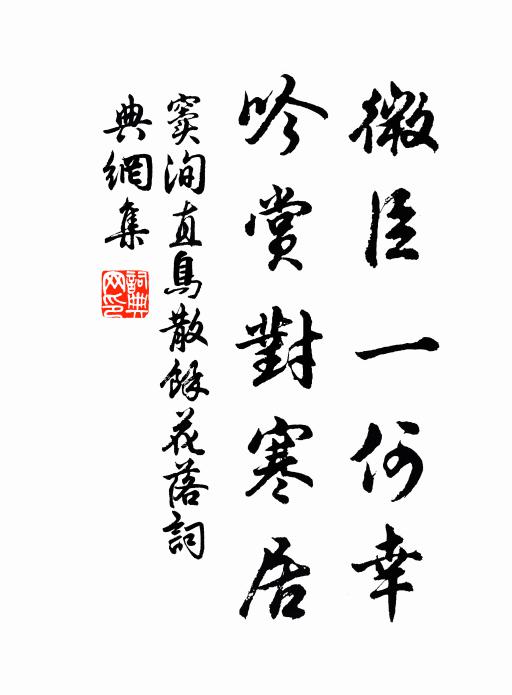 微臣一何幸
吟賞對寒居
竇洵直鳥散餘花落詞
典網集
詞典網印